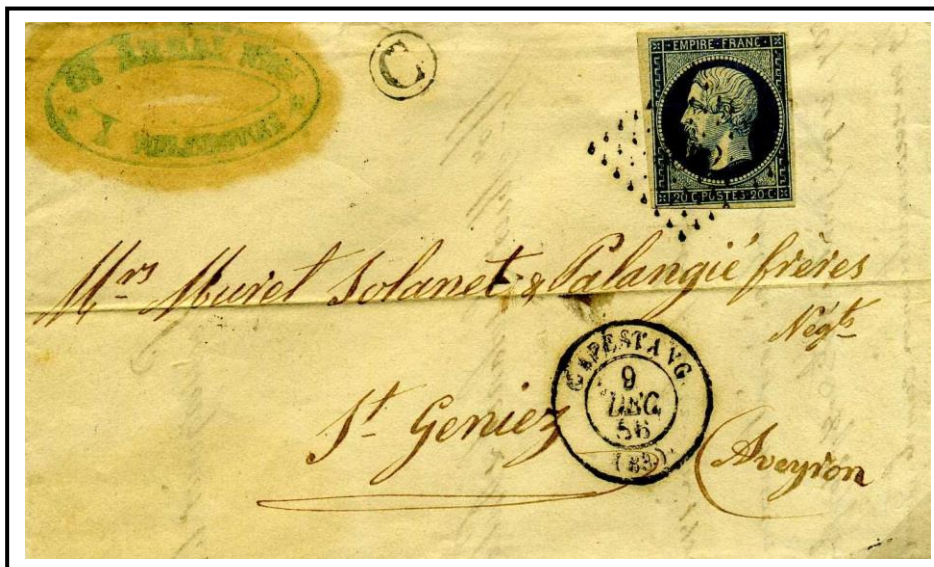 C
EMPIRE · FRANC ·
20 C POSTES 20 C
Mrs Muret Solanet & Palangié frères
Négts
CAPESTANG
9
DEC.
56
St Geniez
(Aveyron